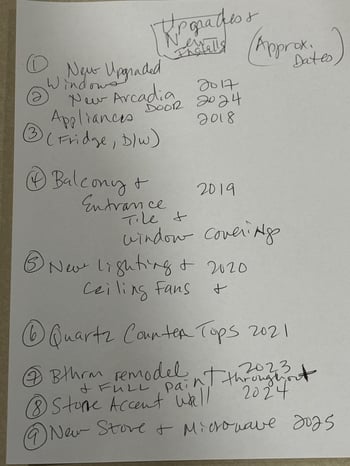 Upgrades &
New
Installs
(Approx.
Dates)
① New Upgraded
Windows 2017
② New Arcadia
Door 2024
Appliances 2018
③ (Fridge, D/W)
④ Balcony & 2019
Entrance
Tile &
Window Coverings
⑤ New lighting & 2020
Ceiling Fans &
⑥ Quartz Counter Tops 2021
⑦ Bthrm remodel 2023
& Full paint throughout
⑧ Stone Accent Wall 2024
⑨ New Stove & Microwave 2025